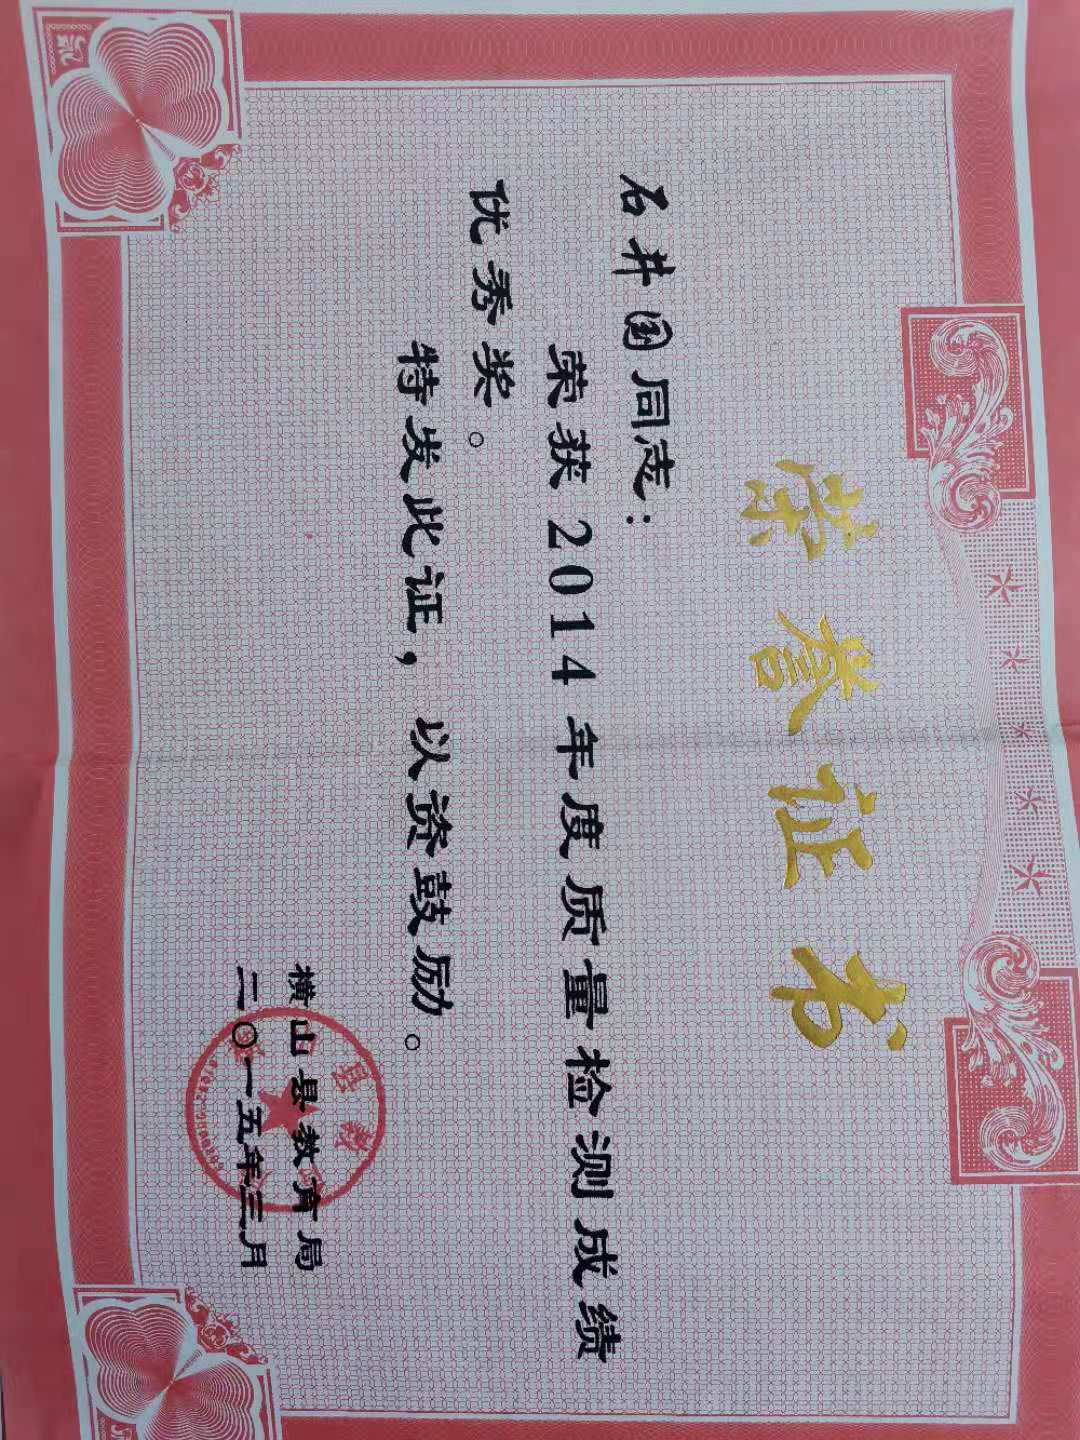 荣誉证书
石井国同志：
荣获2014年度质量检测成绩
优秀奖。
特发此证，以资鼓励。
横山县教育局
二〇一五年三月